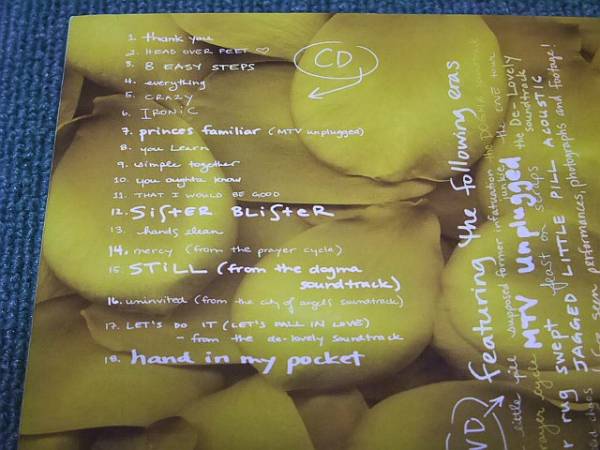 CD
1. thank you
2. HEAD OVER FEET ♡
3. 8 EASY STEPS
4. everything
5. CRAZY
6. IRONIC
7. princes familiar (MTV unplugged)
8. you Learn
9. simple together
10. you oughta know
11. THAT I WOULD BE GOOD
12. SiSTER BLiSTER
13. hands clean
14. mercy (from the prayer cycle)
15. STILL (from the dogma
soundtrack)
16. uninvited (from the city of angels soundtrack)
17. LET'S DO IT (LET'S FALL IN LOVE)
- from the de-lovely soundtrack
18. hand in my pocket
Featuring the following eras
little pill supposed former infatuation junkie
prayer cycle MTV unplugged the De-Lovely
soundtrack
rug swept feast on scraps
JAGGED LITTLE PILL ACOUSTIC
seen performances, photographs and footage!